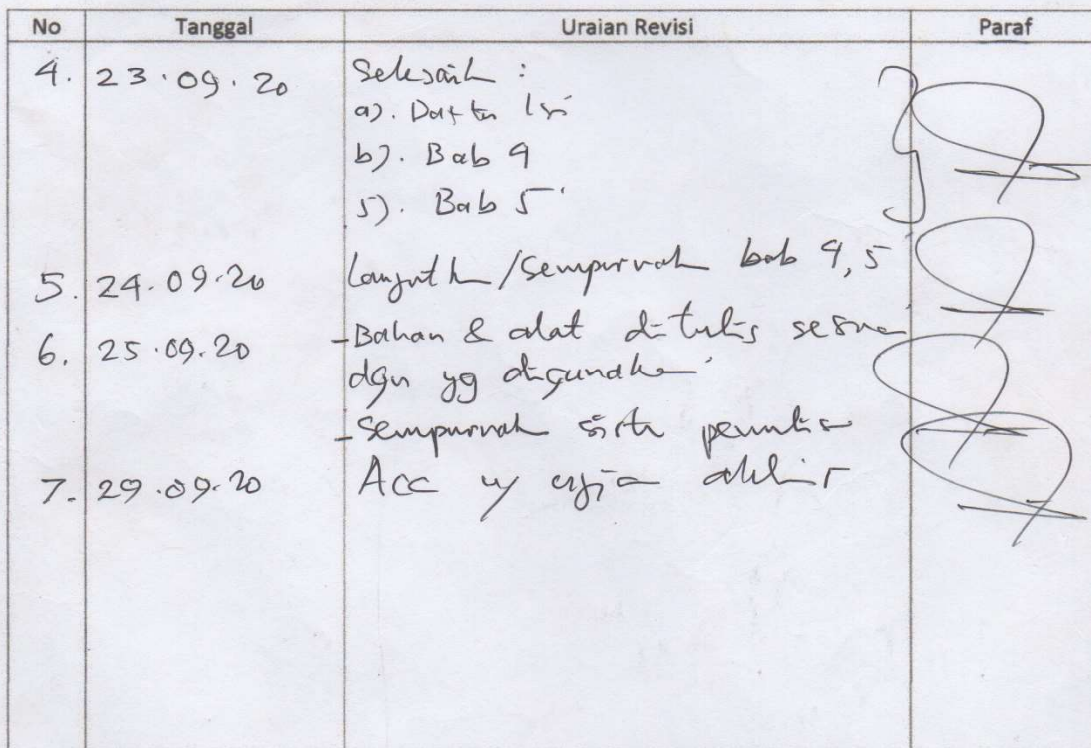 No Tanggal Uraian Revisi Paraf
4. 23.09.20 Selesaik :
a). Daftar Isi
b). Bab 4
5). Bab 5
5. 24.09.20 Lanjutk /Sempurnak bab 4,5
6. 25.09.20 -Bahan & alat ditulis sesuai
dgn yg digunakan
-Sempurnak penulisan
7. 29.09.20 Acc u/ ujian akhir